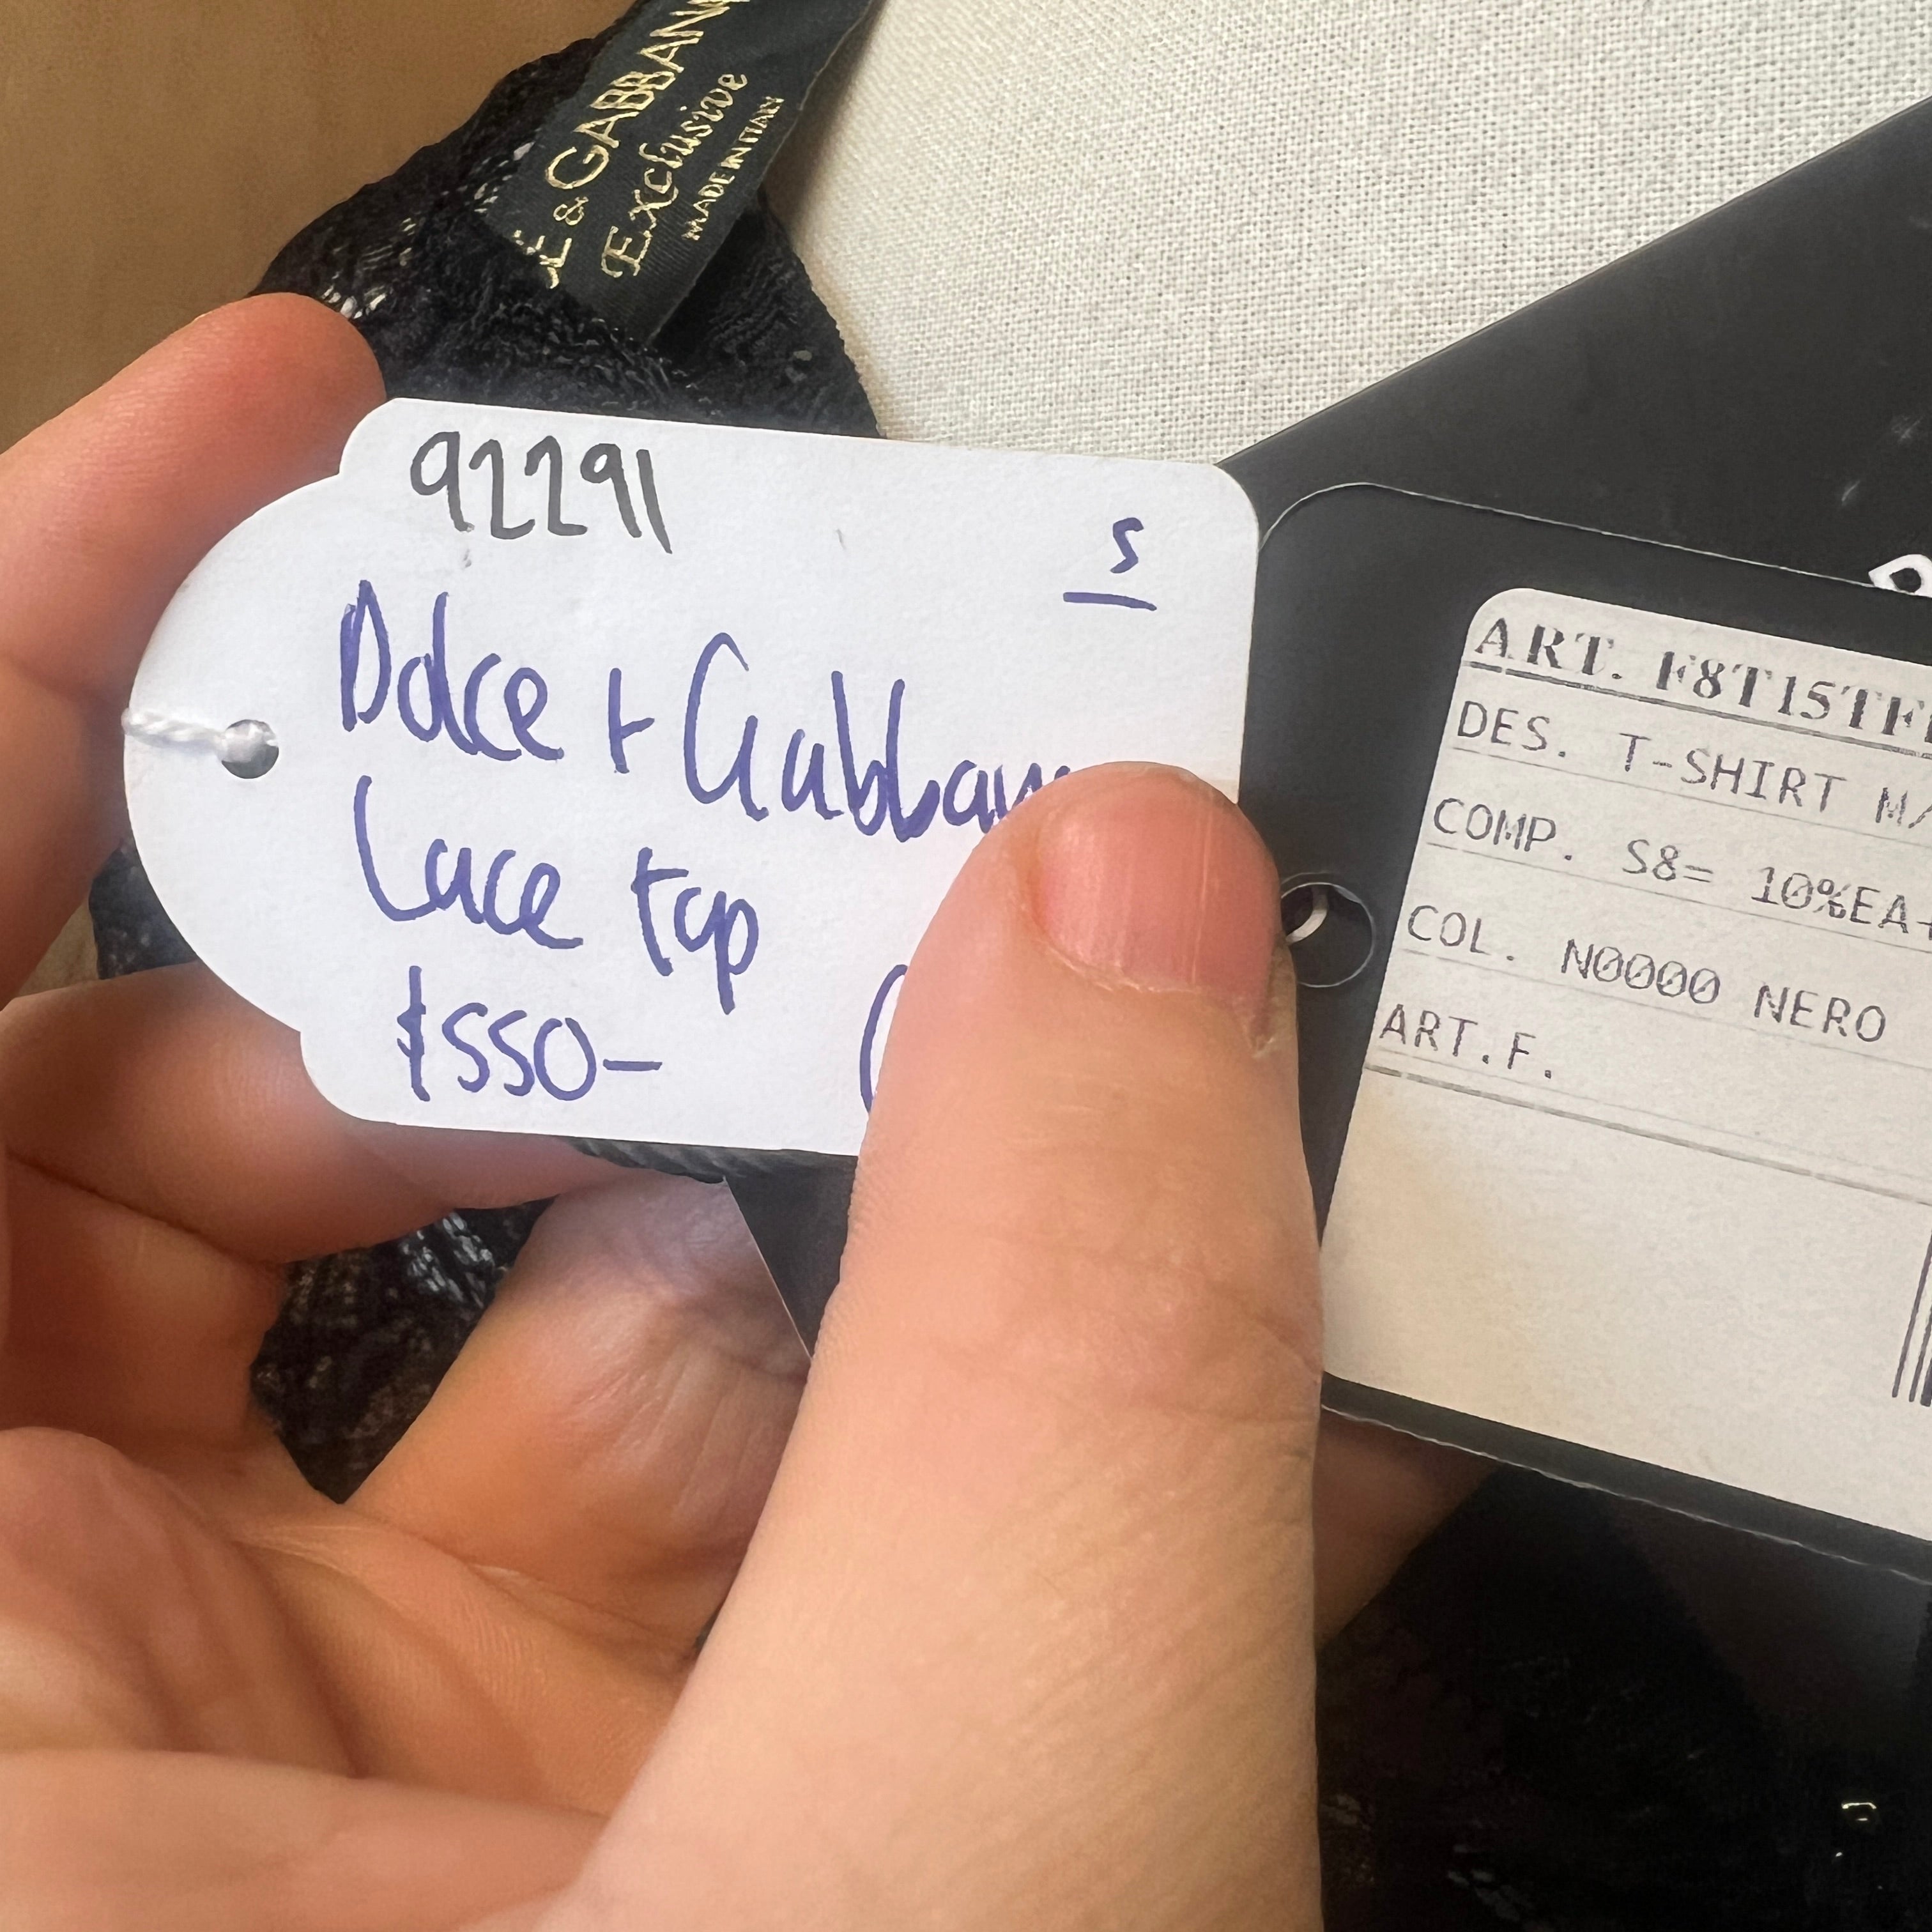 É & GABBAN
Exclusive
MADE IN ITALY
92291
S
Dolce + Gabban
Lace top
$550-
(
ART. F8T15TF
DES. T-SHIRT M/
COMP. S8= 10%EA+
COL. N0000 NERO
ART.F.